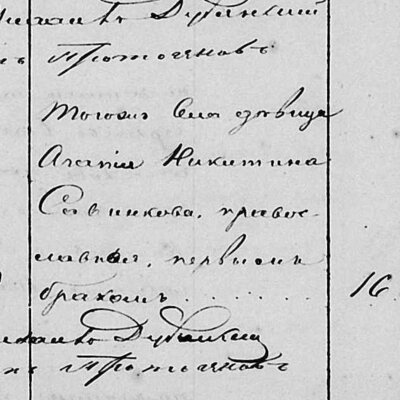 Дубянский
Протогенов
Тогожъ села дѣвица
Агапія Никитина
Савинкова, правос-
лавная, первымъ
бракомъ 16
Дубянский
Протогеновъ